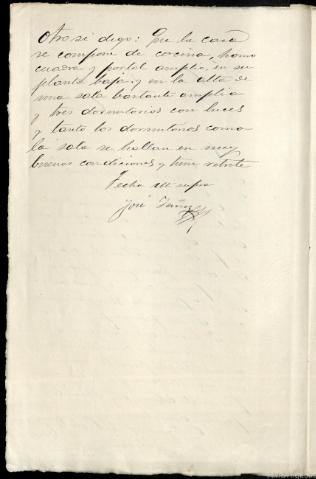 Otro si digo: Que la casa
se compone de cocina, horno
cuadra y portal amplio, en su
planta baja; y en la alta de
una sala bastante amplia
y tres dormitorios con luces
y tanto los dormitorios como
la sala se hallan en muy
buenas condiciones y tiene retrete
Fecha ut supra
José